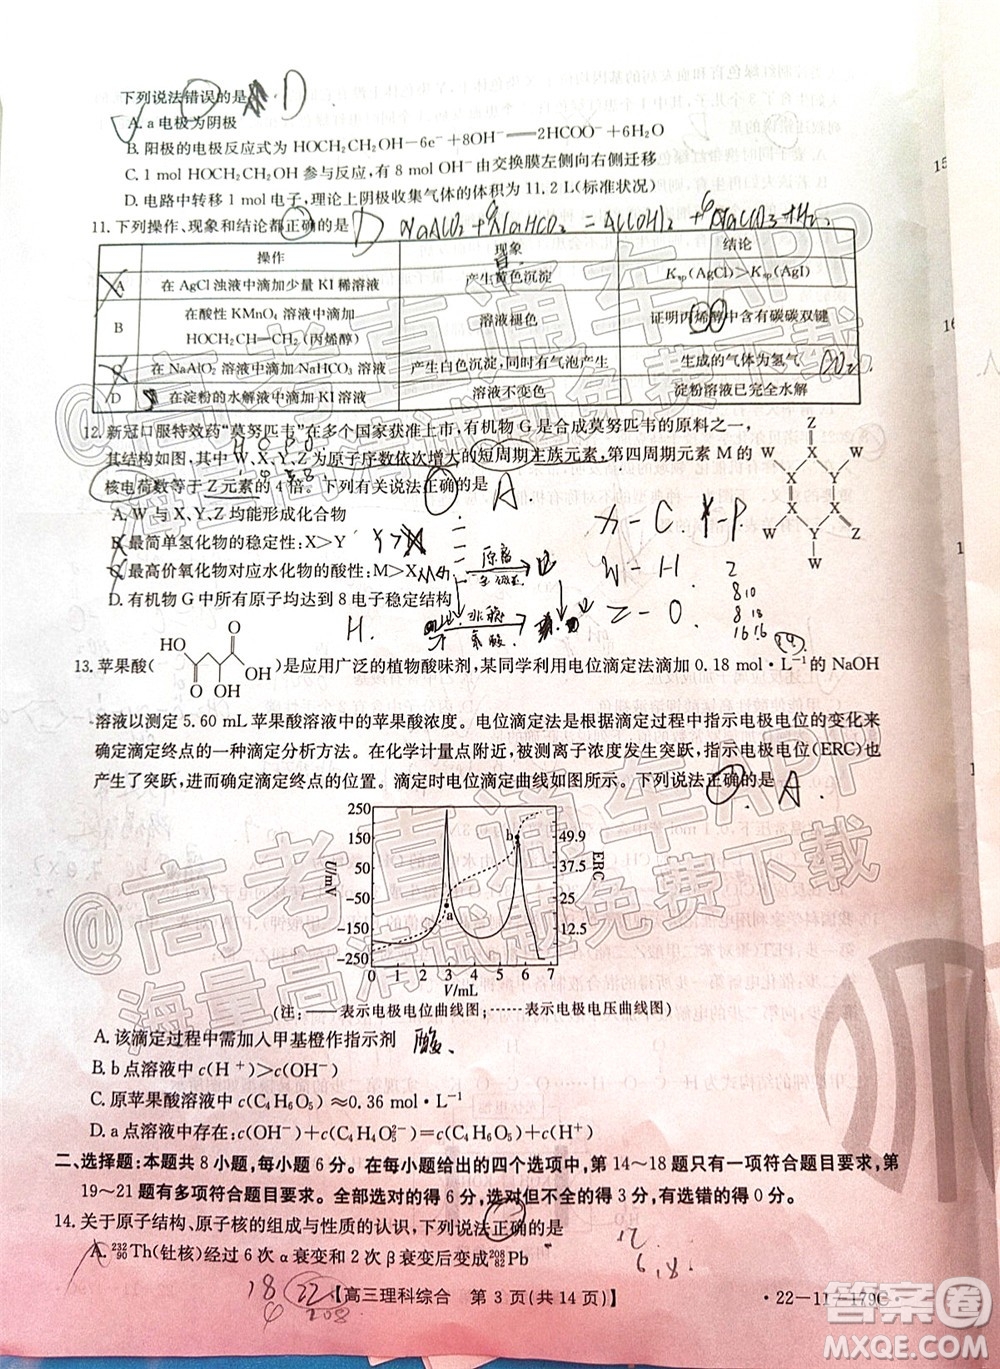 下列说法错误的是 D
A. a 电极为阴极
B. 阳极的电极反应式为 HOCH₂CH₂OH－6e⁻＋8OH⁻══2HCOO⁻＋6H₂O
C. 1 mol HOCH₂CH₂OH 参与反应，有 8 mol OH⁻ 由交换膜左侧向右侧迁移
D. 电路中转移 1 mol 电子，理论上阴极收集气体的体积为 11.2 L(标准状况)
11. 下列操作、现象和结论都正确的是 D
操作 现象 结论
A 在 AgCl 浊液中滴加少量 KI 稀溶液 产生黄色沉淀 Kₛₚ(AgCl)＞Kₛₚ(AgI)
B 在酸性 KMnO₄ 溶液中滴加 HOCH₂CH═CH₂(丙烯醇) 溶液褪色 证明丙烯醇中含有碳碳双键
C 在 NaAlO₂ 溶液中滴加 NaHCO₃ 溶液 产生白色沉淀，同时有气泡产生 生成的气体为氢气
D 在淀粉的水解液中滴加 KI 溶液 溶液不变色 淀粉溶液已完全水解
12. 新冠口服特效药“莫努匹韦”在多个国家获准上市，有机物 G 是合成莫努匹韦的原料之一，
其结构如图，其中 W、X、Y、Z 为原子序数依次增大的短周期主族元素，第四周期元素 M 的
核电荷数等于 Z 元素的 4 倍。下列有关说法正确的是 A
A. W 与 X、Y、Z 均能形成化合物
B. 最简单氢化物的稳定性：X＞Y
C. 最高价氧化物对应水化物的酸性：M＞X
D. 有机物 G 中所有原子均达到 8 电子稳定结构
Z W
Y X
X X W
W Y Z
W
X－C
W－H
Z－O
13. 苹果酸(
HO
O
O
OH
OH
)是应用广泛的植物酸味剂，某同学利用电位滴定法滴加 0.18 mol·L⁻¹ 的 NaOH
溶液以测定 5.60 mL 苹果酸溶液中的苹果酸浓度。电位滴定法是根据滴定过程中指示电极电位的变化来
确定滴定终点的一种滴定分析方法。在化学计量点附近，被测离子浓度发生突跃，指示电极电位(ERC)也
产生了突跃，进而确定滴定终点的位置。滴定时电位滴定曲线如图所示。下列说法正确的是 A
250
150
50
−50
−150
−250
U/mV
49.9
37.5
25
12.5
ERC
a
b
0 1 2 3 4 5 6 7
V/mL
(注：——表示电极电位曲线图；------表示电极电压曲线图)
A. 该滴定过程中需加入甲基橙作指示剂
B. b 点溶液中 c(H⁺)＞c(OH⁻)
C. 原苹果酸溶液中 c(C₄H₆O₅)≈0.36 mol·L⁻¹
D. a 点溶液中存在：c(OH⁻)＋c(C₄H₄O₅²⁻)＝c(H⁺)＋c(C₄H₆O₅)
二、选择题：本题共 8 小题，每小题 6 分。在每小题给出的四个选项中，第 14～18 题只有一项符合题目要求，第
19～21 题有多项符合题目要求。全部选对的得 6 分，选对但不全的得 3 分，有选错的得 0 分。
14. 关于原子结构、原子核的组成与性质的认识，下列说法正确的是
A. ²³²₉₀Th(钍核)经过 6 次 α 衰变和 2 次 β 衰变后变成²⁰⁸₈₂Pb
【高三理科综合 第 3 页(共 14 页)】
·22－11－179C·
@高考直通车APP
海量高清试题免费下载
@高考直通车APP
海量高清试题免费下载
答案圈
MXQE.COM